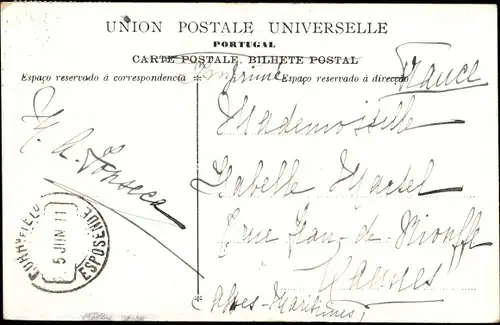 UNION POSTALE UNIVERSELLE
PORTUGAL
CARTE POSTALE. BILHETE POSTAL
Espaço reservado á correspondencia
Espaço reservado á direcção
Imprimé
France
M. A. Fonseca
Mademoiselle
Isabelle Martel
rue Jean de Riouffe
Cannes
(Alpes-Maritimes)
5 JUN 11
ESPOSENDE